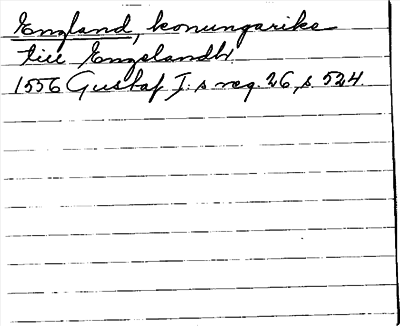 England, konungarike
till Engelandh
1556 Gustaf I:s reg. 26, s. 524